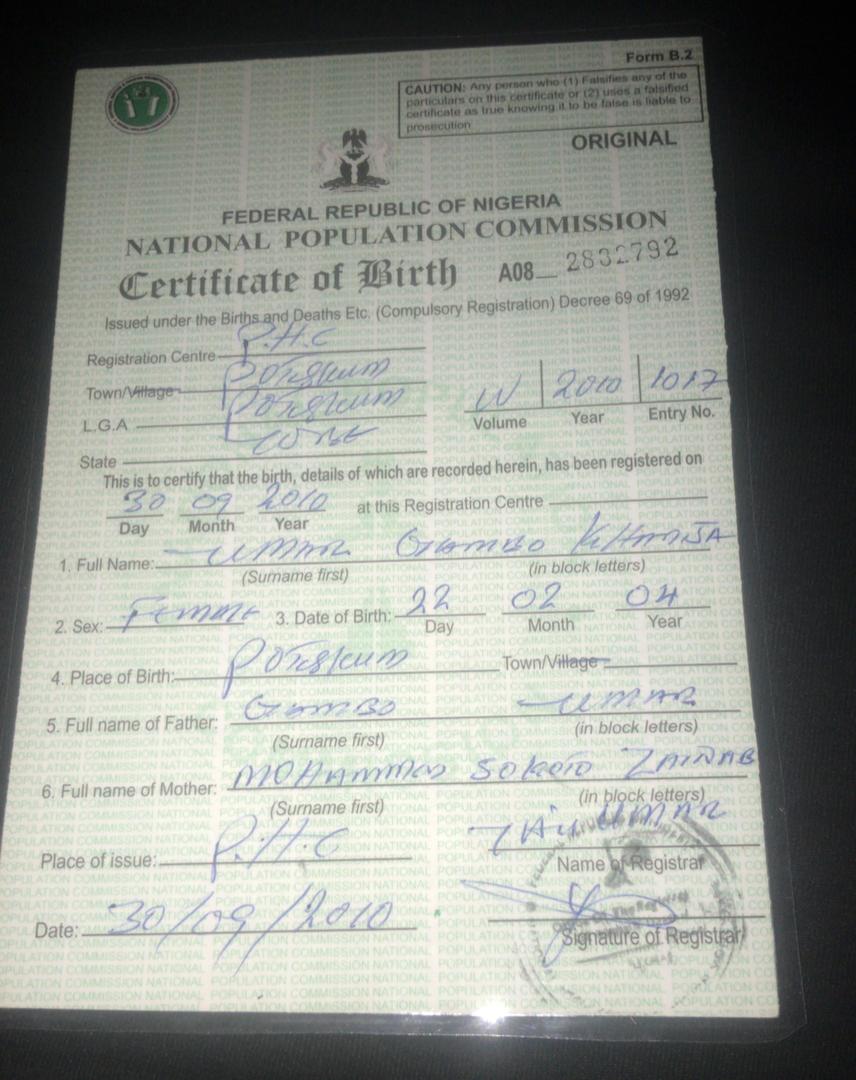 Form B.2
CAUTION: Any person who (1) Falsifies any of the
particulars on this certificate or (2) uses a falsified
certificate as true knowing it to be false is liable to
prosecution
ORIGINAL
FEDERAL REPUBLIC OF NIGERIA
NATIONAL POPULATION COMMISSION
Certificate of Birth A08 2832792
Issued under the Births and Deaths Etc. (Compulsory Registration) Decree 69 of 1992
Registration Centre P.H.C
Town/Village Potiskum
L.G.A Potiskum
State Yobe
IV 2010 1017
Volume Year Entry No.
This is to certify that the birth, details of which are recorded herein, has been registered on
30 09 2010 at this Registration Centre
Day Month Year
1. Full Name: UMAR GAMBO
(Surname first) (in block letters)
2. Sex: Female 3. Date of Birth: 22 02 04
Day Month Year
4. Place of Birth: Potiskum Town/Village
5. Full name of Father: GAMBO UMAR
(Surname first) (in block letters)
6. Full name of Mother: MOHAMMED SOKOTO ZAINAB
(Surname first) (in block letters)
Place of issue: P.H.C UMAR
Name of Registrar
Date: 30/09/2010
Signature of Registrar